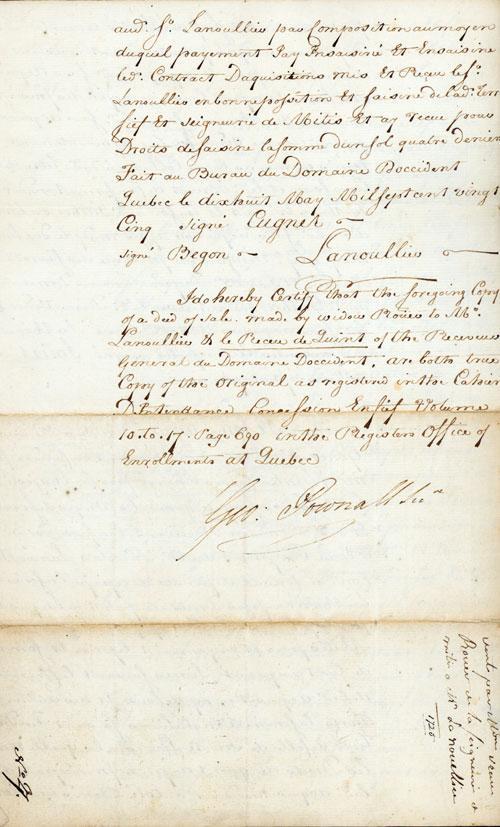 aud. Sr. Lanoullier par Composition au moyen
duquel payement Jay Ensaisiné Et Ensaisine
led. Contract Daquisitions mis Et Reçu le Sr.
Lanoullier en bonne possession Et saisine de lad. terre
fief Et Seigneurie de Mitis Et ay recue pour
Droits de saisine la somme dun sol quatre denier
Fait au Bureau du Domaine Doccident
Quebec le dixhuit May Mil sept cent vingt
Cinq signé Cugnet
signé Begon Lanoullier
I do hereby Certify that the foregoing Copy
of a deed of sale made by widow Rouer to Mr.
Lanoullier & le Receu de Quint of the Receveur
General du Domaine Doccident, are both true
Copy of the Original as registered in the Cahier
D'Intendance Concession En fief Volume
10 to. 17. Page 690 in the Registers Office of
Enrollments at Quebec
Geo: Pownall
vente par
Rouer de la Seigneurie de
mitis a Mr. La noullier
1725